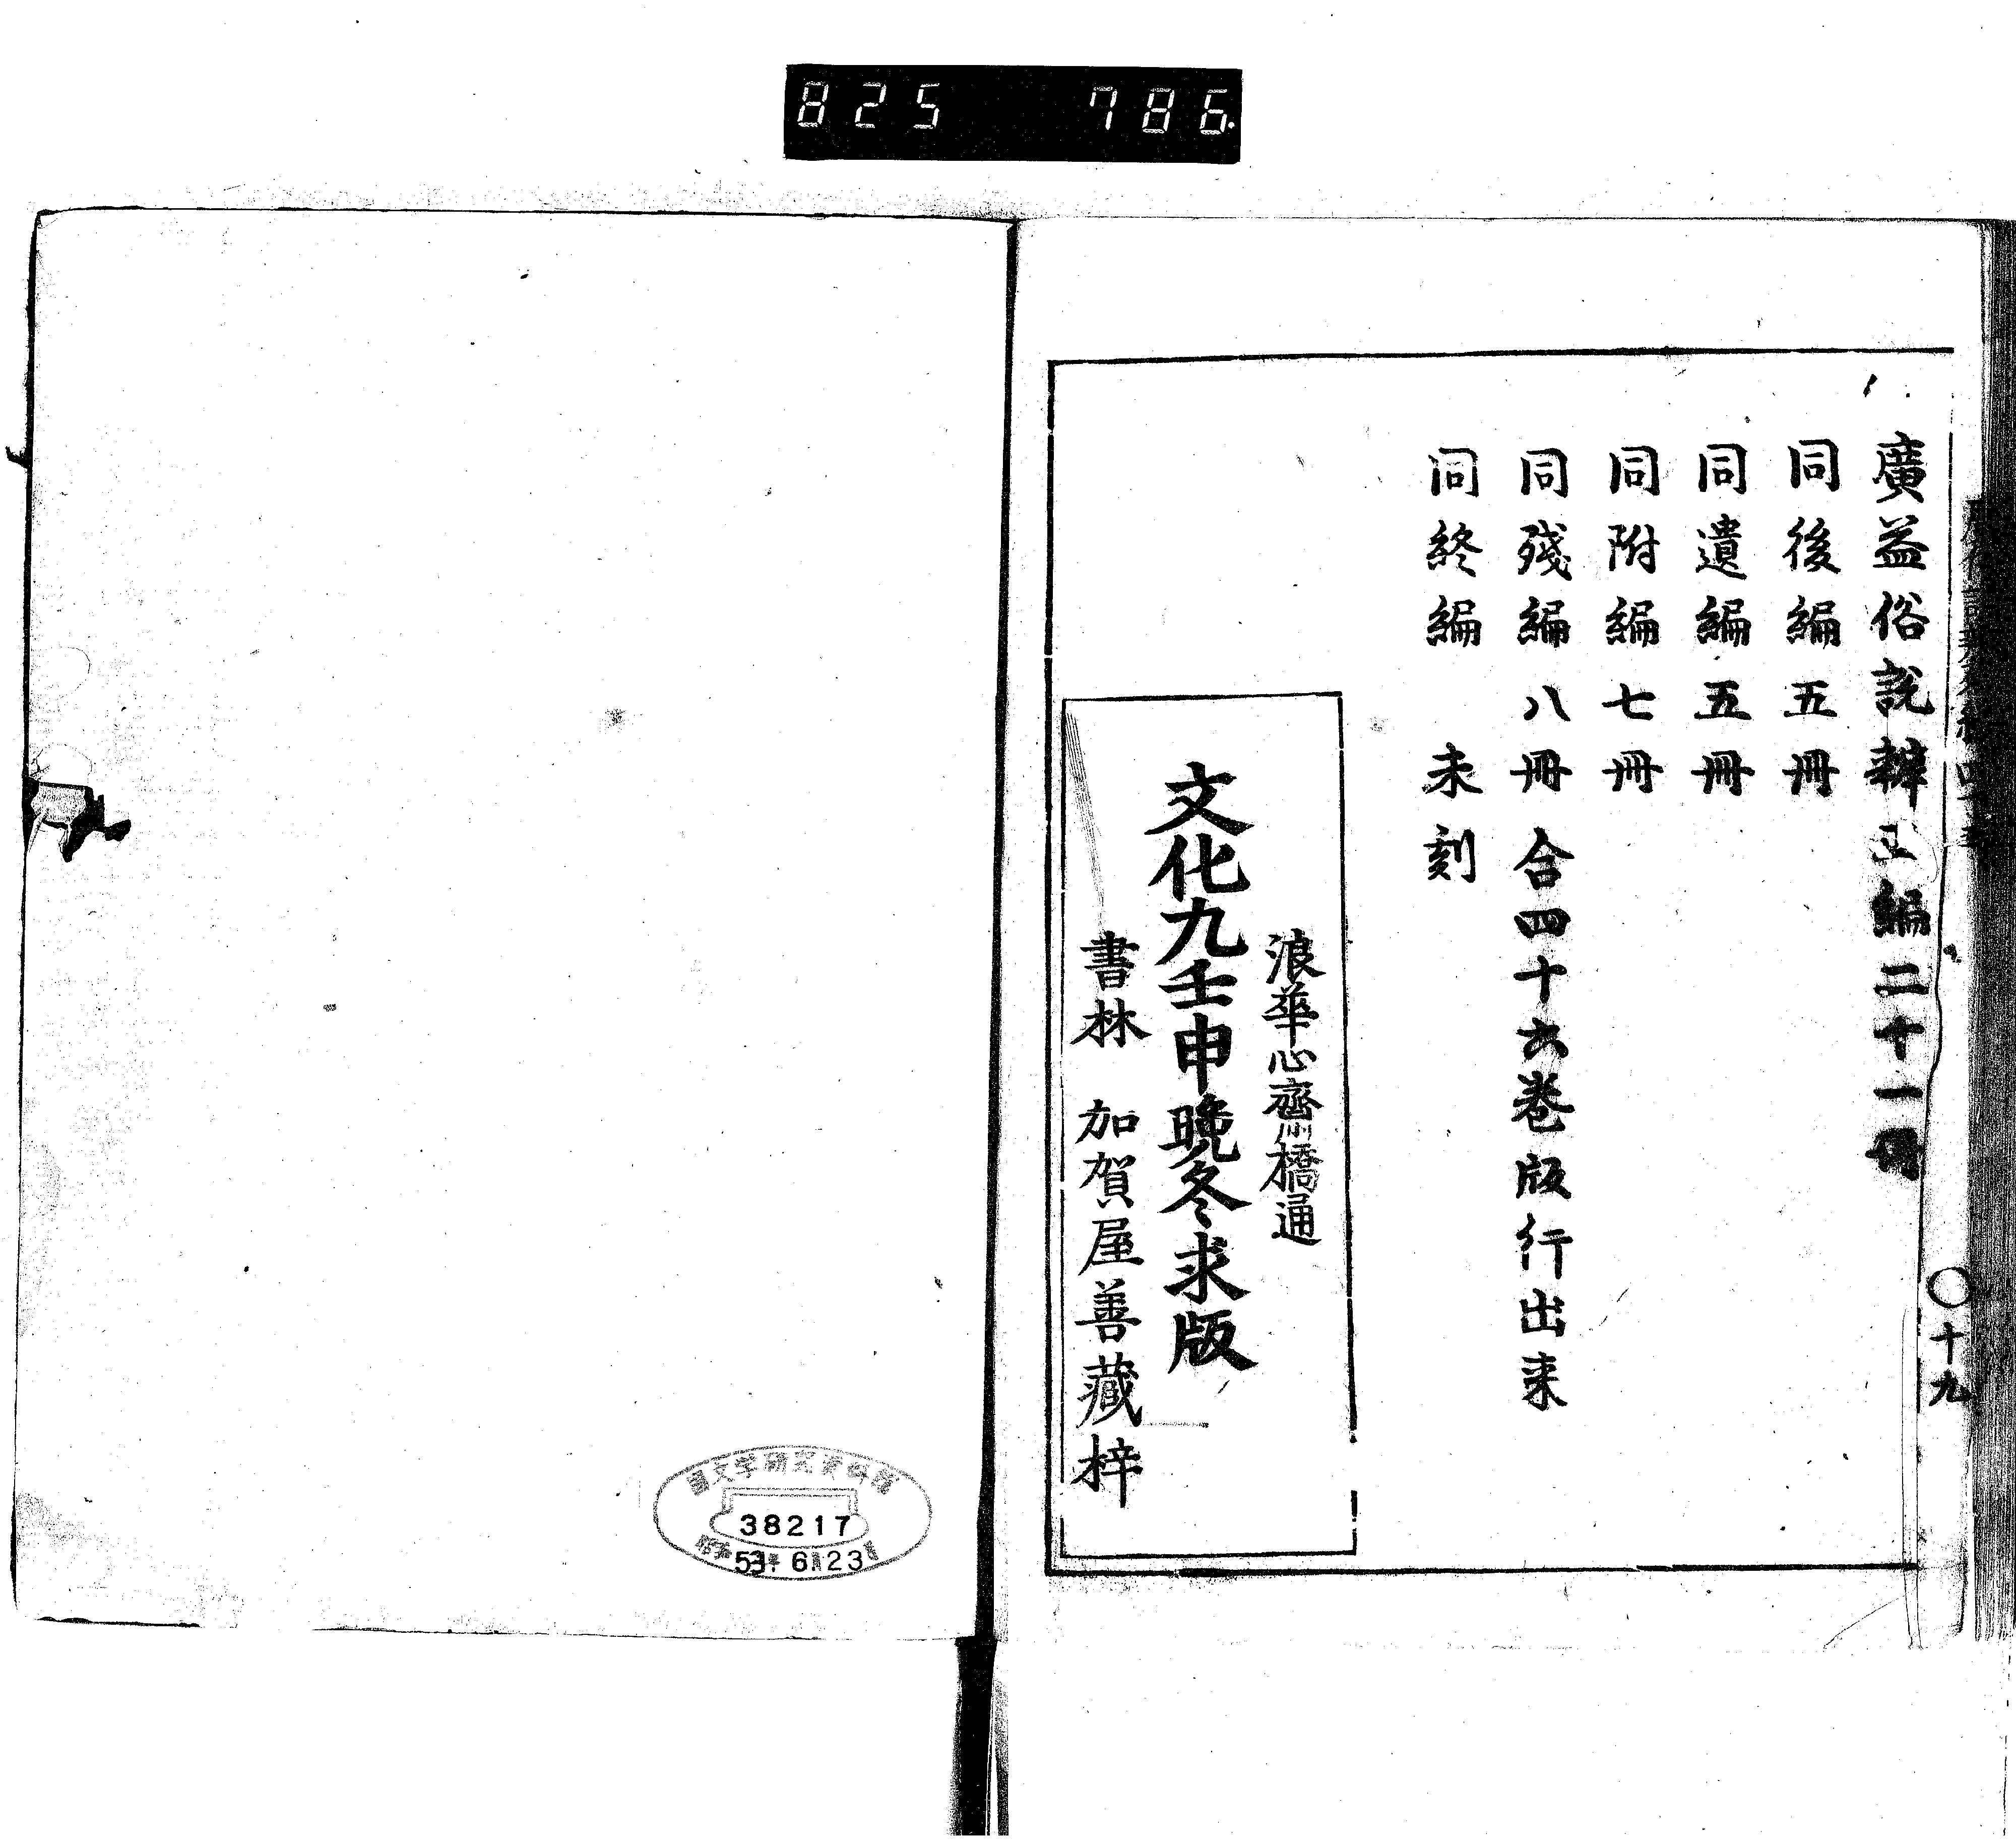 825 786.
廣益俗説辯正編二十一冊
同後編五冊
同遺編五冊
同附編七冊
同残編八冊 合四十六巻版行出来
同終編 未刻
浪華心齋橋通
文化九壬申晩冬求版
書林 加賀屋善藏梓
十九
國文学研究資料館
38217
昭和53年6月23日